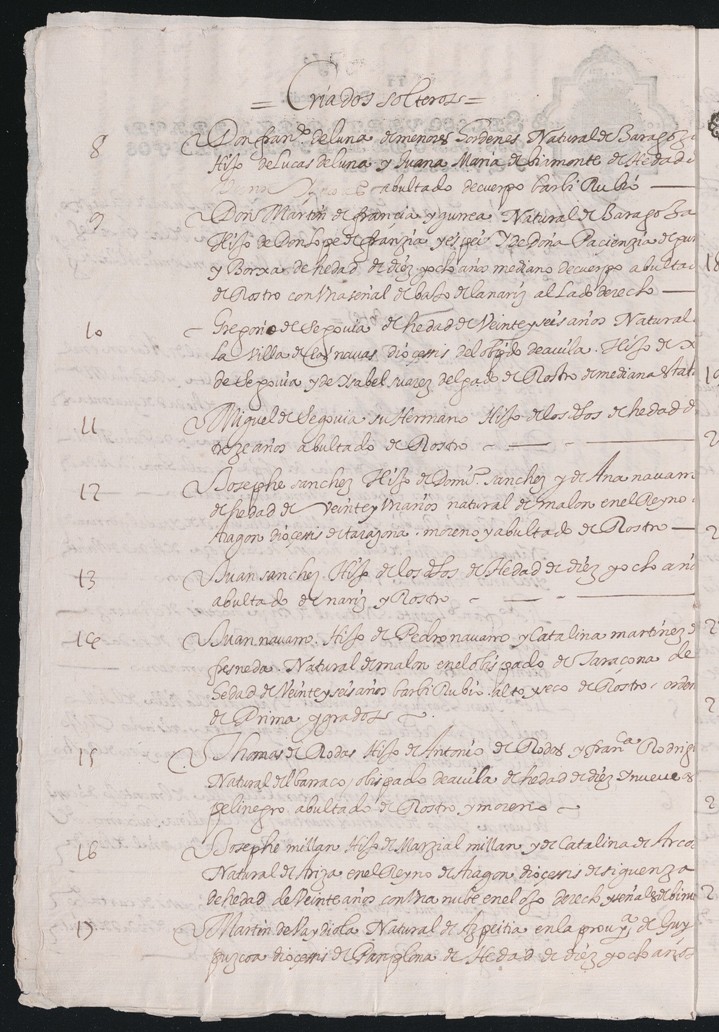 = Criados solteros =
8 Don fran.co de luna de menores hordenes, Natural de Barago
Hijo de Lucas de luna y Juana Maria de biamonte de Hedad d
abultado de cuerpo barbi Rubio
9 Don Martin de francia y gurrea Natural de Baragoza
Hijo de Don Lope de franzia y espes Y de Doña Pacienzia de gur
y Borxa de hedad de diez y ocho años mediano de cuerpo abultad
de Rostro con Una señal de baxo de la nariz al Lado derecho
10 Gregorio de Segovia de hedad de Veinte y seis años Natural
La Villa de las navas diocesis del obpdo de avila. Hijo de
de Segovia y de Ysabel suarez delgado de Rostro de mediana estat
11 Miguel de Segovia su Hermano Hijo de los dhos de hedad d
treze años abultado de Rostro
12 Josephe sanchez Hijo de Domi.o sanchez y de Ana navarr
de hedad de veinte y Un años natural de malon en el Reyno
Aragon diocesis de tarazona. moreno y abultado de Rostro
13 Juan sanchez Hijo de los dhos de Hedad de diez y ocho año
abultado de nariz y Rostro
14 Juan navarro Hijo de Pedro navarro y Catalina martinez d
fresneda Natural de malon en el obispado de Taracona de
hedad de Veinte y seis años barbi Rubio. alto y seco de Rostro. orden
de Prima y grados
15 Thomas de Rodas Hijo de Antonio de Rodas y fran.ca Rodrig
Natural del barraco, obispado de avila de hedad de diez Y nueve
pelinegro abultado de Rostro y moreno
16 Josephe millan Hijo de Marzial millan y de Catalina de Arco
Natural de Ariza en el Reyno de Aragon diocesis de siguenza
de hedad de Veinte años con Una nube en el ojo derecho y señales de biru
17 Martin de Natural de Azpeitia en la prou.a de Guy
puzcoa diocesis de Panplona de Hedad de diez y ocho años